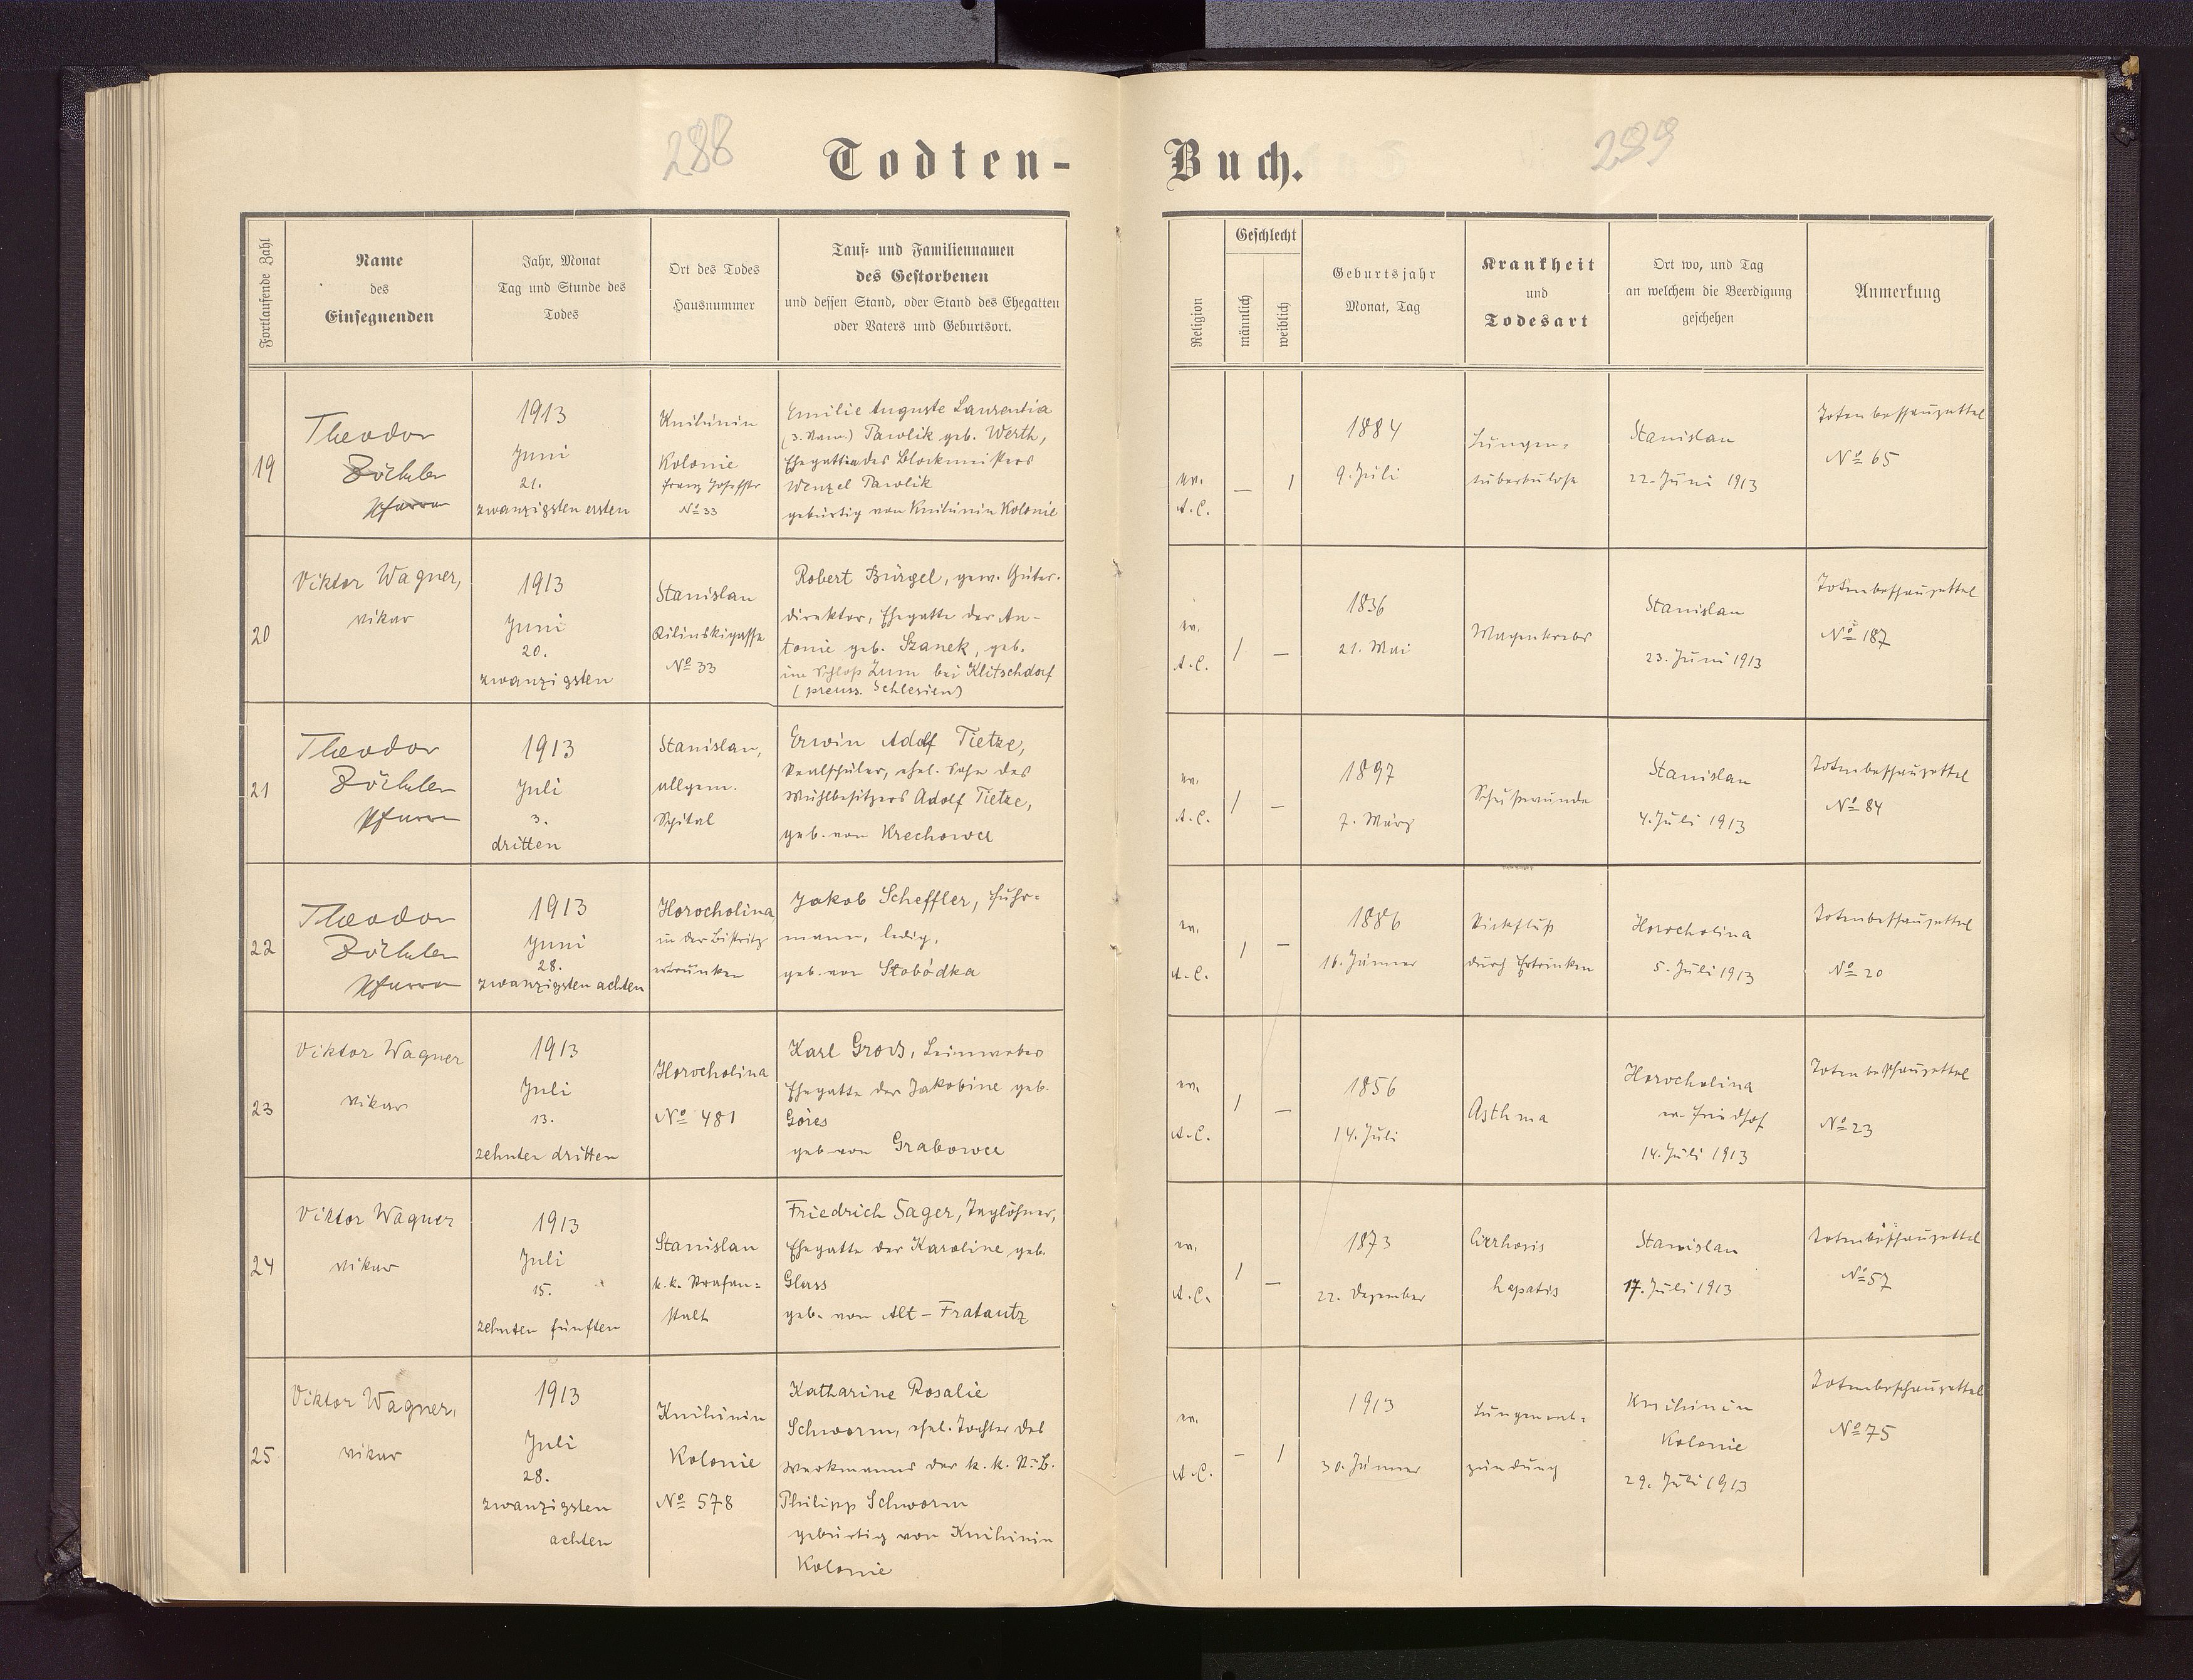 288
Todten-
Buch.
289
Fortlaufende Zahl
Name
des
Einsegnenden
Jahr, Monat
Tag und Stunde des
Todes
Ort des Todes
Hausnummer
Tauf- und Familiennamen
des Gestorbenen
und dessen Stand, oder Stand des Ehegatten
oder Vaters und Geburtsort.
Religion
Geschlecht
männlich
weiblich
Geburtsjahr
Monat, Tag
Krankheit
und
Todesart
Ort wo, und Tag
an welchem die Beerdigung
geschehen
Anmerkung
19
Theodor
Zöckler
Pfarrer
1913
Juni
21.
zwanzigsten ersten
Knihinin
Kolonie
Franz Josefstr
No 33
Emilie Auguste Laurentia
(3. Nam.) Pawlik geb. Werth,
Ehegattin des Blockmeisters
Wenzel Pawlik
gebürtig von Knihinin Kolonie
ev.
A.C.
—
1
1884
9. Juli
Lungen-
tuberkulose
Stanislau
22. Juni 1913
Totenbeschauzettel
No 65
20
Viktor Wagner,
Vikar
1913
Juni
20.
zwanzigsten
Stanislau
Kilinskigasse
No 33
Robert Bürgel, gew. Güter-
direktor, Ehegatte der An-
tonie geb. Szanek, geb.
im Schloß Zum bei Klitschdorf
(preuss. Schlesien)
ev.
A.C.
1
—
1836
21. Mai
Magenkrebs
Stanislau
23. Juni 1913
Totenbeschauzettel
No 187
21
Theodor
Zöckler
Pfarrer
1913
Juli
3.
dritten
Stanislau,
allgem.
Spital
Erwin Adolf Tietze,
Realschüler, ehel. Sohn des
Mühlbesitzers Adolf Tietze,
geb. von Krechowce
ev.
A.C.
1
—
1897
7. März
Schußwunde
Stanislau
4. Juli 1913
Totenbeschauzettel
No 84
22
Theodor
Zöckler
Pfarrer
1913
Juni
28.
zwanzigsten achten
Horocholina
in der Bistritz
ertrunken
Jakob Scheffler, Fuhr-
mann, ledig,
geb. von Slobódka
ev.
A.C.
1
—
1886
16. Jänner
Stickfluß
durch Ertrinken
Horocholina
5. Juli 1913
Totenbeschauzettel
No 20
23
Viktor Wagner
Vikar
1913
Juli
13.
zehnten dritten
Horocholina
No 481
Karl Gross, Leinweber
Ehegatte der Jakobine geb.
Göres
geb von Grabowce
ev.
A.C.
1
—
1856
14. Juli
Asthma
Horocholina
ev. Friedhof
14. Juli 1913
Totenbeschauzettel
No 23
24
Viktor Wagner
Vikar
1913
Juli
15.
zehnten fünften
Stanislau
k.k. Strafan-
stalt
Friedrich Sager, Taglöhner,
Ehegatte der Karoline geb.
Glass
geb. von Alt-Fratautz
ev.
A.C.
1
—
1873
22. Dezember
Cirrhosis
hepatis
Stanislau
17. Juli 1913
Totenbeschauzettel
No 57
25
Viktor Wagner,
Vikar
1913
Juli
28.
zwanzigsten
achten
Knihinin
Kolonie
No 578
Katharine Rosalie
Schworm, ehel. Tochter des
Werkmanns der k.k. St.-B.
Philipp Schworm
gebürtig von Knihinin
Kolonie
ev.
A.C.
—
1
1913
30. Jänner
Lungenent-
zündung
Knihinin
Kolonie
29. Juli 1913
Totenbeschauzettel
No 75